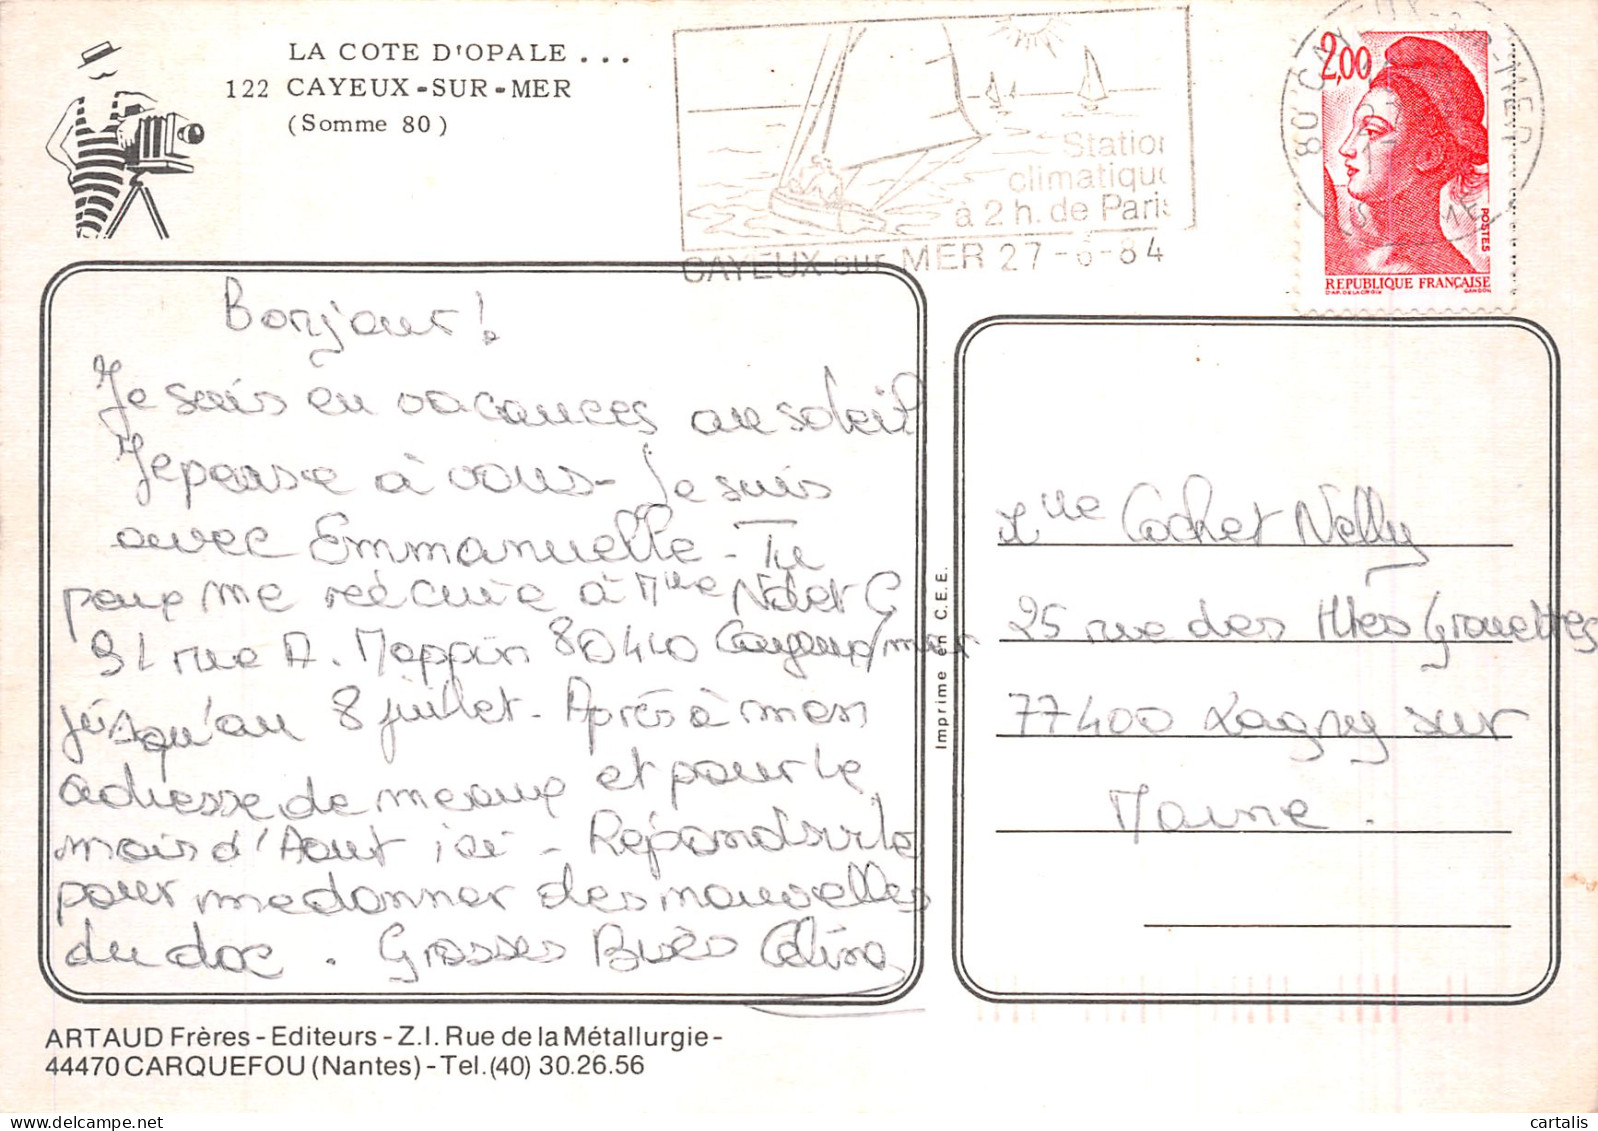 LA COTE D'OPALE ...
122 CAYEUX-SUR-MER
(Somme 80)
Station
climatique
à 2 h. de Paris
CAYEUX sur MER 27-6-84
80 CAYEUX-SUR-MER
2,00
POSTES
REPUBLIQUE FRANÇAISE
D'AP. DELACROIX GANDON
Bonjour!
Je suis en vacances au soleil
Je pense à vous - Je suis
avec Emmanuelle - Tu
peux me réécrire à Mme
rue A. 80410 Cayeux/mer
jusqu'au 8 juillet - Après à mon
adresse de meaux et pour le
mois d'Aout ici - Répond vite
pour me donner des nouvelles
du doc. Grosses Bises Céline
Mlle Cochet Nelly
25 rue des Htes Grouettes
77400 Lagny sur
Marne.
Imprimé en C.E.E.
ARTAUD Frères - Editeurs - Z.I. Rue de la Métallurgie -
44470 CARQUEFOU (Nantes) - Tel. (40) 30.26.56
cartalis